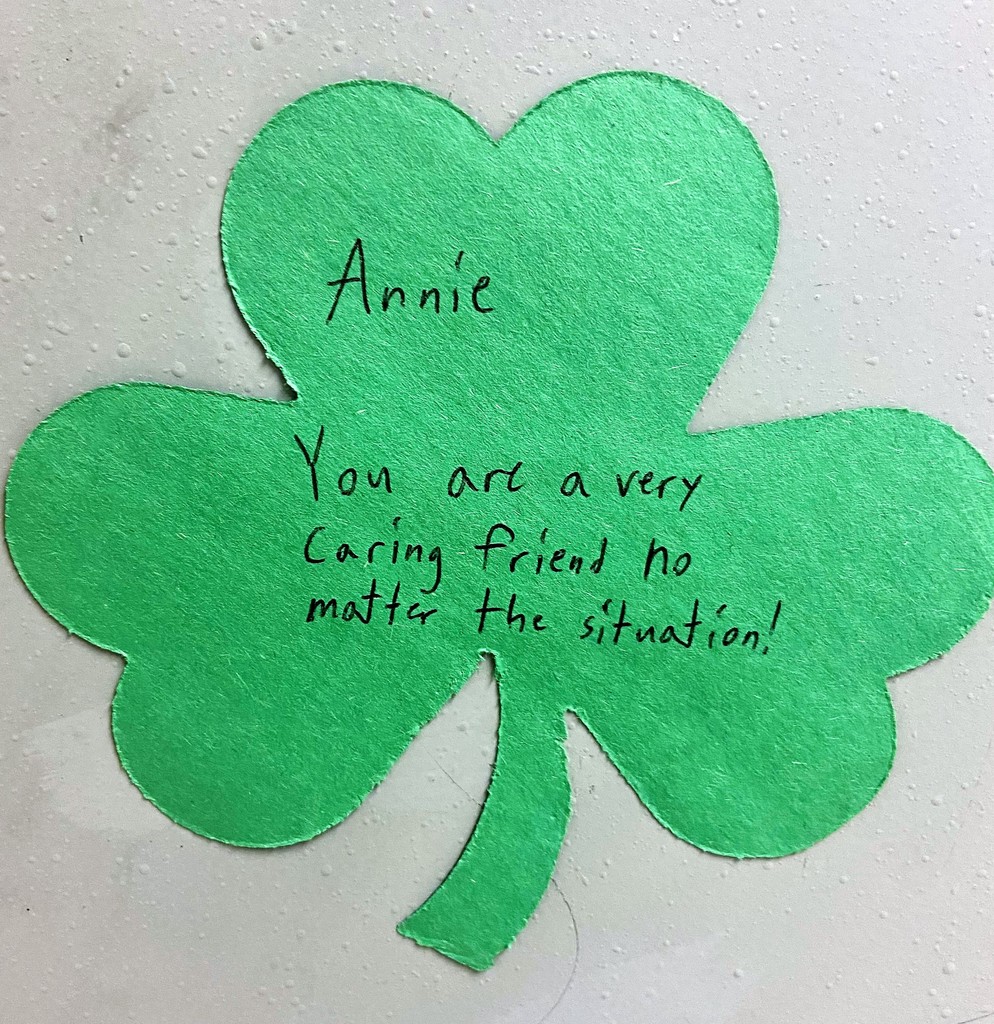 Annie
You are a very
caring friend no
matter the situation!